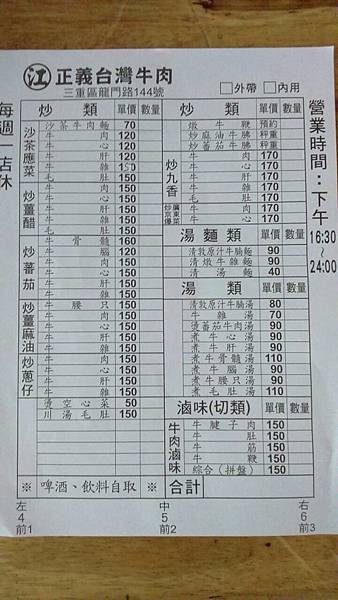 江 正義台灣牛肉
三重區龍門路144號
□外帶 □內用
每週一店休
營業時間：下午16:30~24:00
炒類 單價 數量
沙茶應菜
沙茶牛肉麵 70
牛肉 120
牛心 120
牛肝 120
牛雜
毛肚 150
炒薑醋
牛肉 150
牛心 150
牛肝 150
牛雜 150
毛肚 150
牛骨髓 160
炒蕃茄
牛腦 120
牛肉 150
牛心 150
牛肝 150
牛雜 150
炒薑麻油 炒蔥仔
牛腰只 150
牛肉 150
牛雜 150
牛心 150
牛肝 150
牛肉 150
牛心 150
牛肝 150
牛雜 150
燙空心菜 50
川湯毛肚 150
※ 啤酒、飲料自取 ※
炒類 單價 數量
燉牛鞭 預約
炒麻油牛腩 秤重
炒蕃茄牛腩 秤重
炒九香
牛肉 170
牛心 170
牛肝 170
牛雜 170
毛肚 170
炒廣東京優菜
牛肉 170
牛心 170
湯麵類 單價 數量
清敦原汁牛腩麵 90
清燉牛雜麵 90
清湯麵 40
湯類 單價 數量
清敦原汁牛腩湯 80
牛雜湯 70
燙蕃茄牛肉湯 90
煮牛心湯 90
煮牛肝湯 90
煮牛骨髓湯 110
煮牛腦湯 90
煮牛腰只湯 90
煮毛肚湯 110
滷味(切類) 單價 數量
牛肉滷味
牛腱子肉 150
牛肚 150
牛筋 150
牛鞭 150
綜合(拼盤) 150
合計
左4前1
中5前2
右6前3